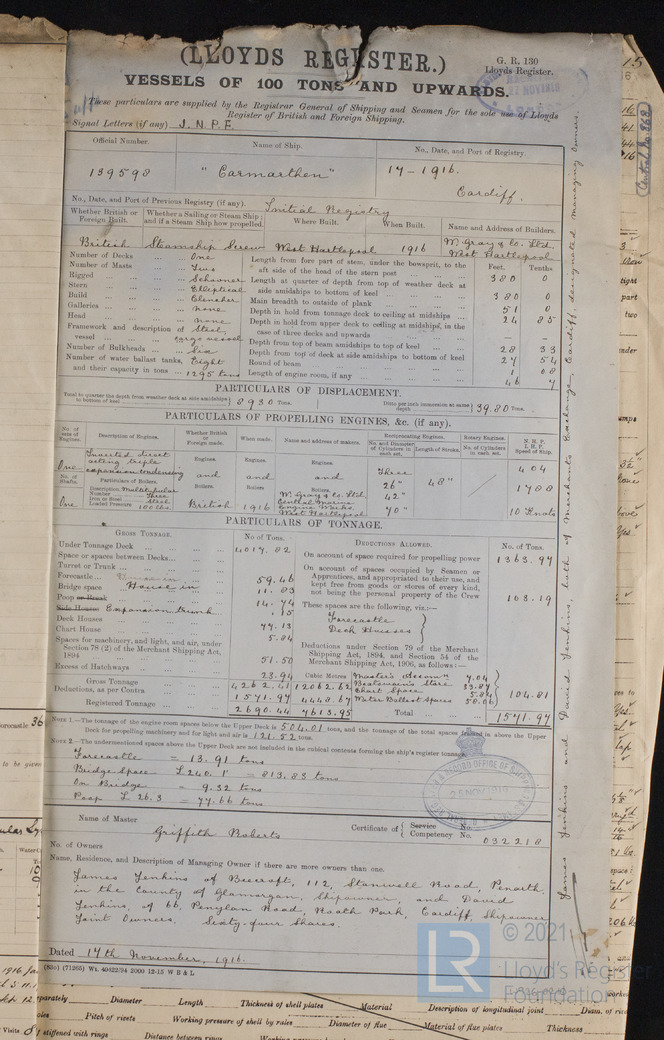 (LLOYDS REGISTER.)
G. R. 130
Lloyds Register.
VESSELS OF 100 TONS AND UPWARDS.
These particulars are supplied by the Registrar General of Shipping and Seamen for the sole use of Lloyds
Register of British and Foreign Shipping.
Signal Letters (if any) J. N. P. F.
Official Number. Name of Ship. No., Date, and Port of Registry.
139598 "Carmarthen" 17 - 1916.
Cardiff.
No., Date, and Port of Previous Registry (if any). Initial Registry
Whether British or Foreign Built. Whether a Sailing or Steam Ship; and if a Steam Ship how propelled. Where Built. When Built. Name and Address of Builders.
British Steamship Screw West Hartlepool 1916 W. Gray & Co. Ltd. West Hartlepool
Number of Decks One
Number of Masts Two
Rigged Schooner
Stern Elliptical
Build Clencher
Galleries none
Head none
Framework and description of vessel Steel, cargo vessel
Number of Bulkheads Six
Number of water ballast tanks, Eight
and their capacity in tons 1295 tons
Feet. Tenths
Length from fore part of stem, under the bowsprit, to the aft side of the head of the stern post 380 0
Length at quarter of depth from top of weather deck at side amidships to bottom of keel 380 0
Main breadth to outside of plank 51 0
Depth in hold from tonnage deck to ceiling at midships 24 85
Depth in hold from upper deck to ceiling at midships, in the case of three decks and upwards - -
Depth from top of beam amidships to top of keel 28 33
Depth from top of deck at side amidships to bottom of keel 27 54
Round of beam 1 08
Length of engine room, if any 46 7
PARTICULARS OF DISPLACEMENT.
Total to quarter the depth from weather deck at side amidships to bottom of keel 8930 Tons.
Ditto per inch immersion at same depth 39.80 Tons.
PARTICULARS OF PROPELLING ENGINES, &c. (if any).
No. of sets of Engines. Description of Engines. Whether British or Foreign made. When made. Name and address of makers. Reciprocating Engines. Rotary Engines. N.H.P. I.H.P. Speed of Ship.
No. and Diameter of Cylinders in each set. Length of Stroke. No. of Cylinders in each set.
One Inverted direct acting triple expansion condensing Engines. and Engines. and Engines. and Three 26" 42" 70" 48" 404
1788
No. of Shafts. Particulars of Boilers. Boilers. Boilers. Boilers.
One Description Multitubular Number Three Iron or Steel Steel Loaded Pressure British 1916 W. Gray & Co. Ltd. Central Marine Engine Works West Hartlepool 10 Knots
PARTICULARS OF TONNAGE.
GROSS TONNAGE. No. of Tons.
Under Tonnage Deck 4017.82
Space or spaces between Decks
Turret or Trunk
Forecastle
Bridge space 59.46
House in 11.83
Poop or Break 14.74
Side Houses Expansion trunk .15
Deck Houses 77.13
Chart House 5.84
Spaces for machinery, and light, and air, under Section 78 (2) of the Merchant Shipping Act, 1894 51.50
Excess of Hatchways 23.94
Cubic Metres
Gross Tonnage 4262.41 12062.62
Deductions, as per Contra 1571.97 4448.67
Registered Tonnage 2690.44 7613.95
DEDUCTIONS ALLOWED. No. of Tons.
On account of space required for propelling power 1363.97
On account of spaces occupied by Seamen or Apprentices, and appropriated to their use, and kept free from goods or stores of every kind, not being the personal property of the Crew 103.19
These spaces are the following, viz.:—
Forecastle
Deck Houses
Deductions under Section 79 of the Merchant Shipping Act, 1894, and Section 54 of the Merchant Shipping Act, 1906, as follows:—
Master's Accomn 7.04
Boatswain's Store 33.87
Chart Space 5.84
Water Ballast Spaces 58.06
104.81
Total 1571.97
NOTE 1.—The tonnage of the engine room spaces below the Upper Deck is 504.01 tons, and the tonnage of the total spaces framed in above the Upper
Deck for propelling machinery and for light and air is 121.52 tons.
NOTE 2.—The undermentioned spaces above the Upper Deck are not included in the cubical contents forming the ship's register tonnage:
Forecastle = 13.91 tons
Bridge Space L 240.1' = 813.83 tons
On Bridge = 9.32 tons
Poop L 26.3 = 77.66 tons
Name of Master Griffith Roberts
Certificate of Service No. Competency No. 032218
No. of Owners
Name, Residence, and Description of Managing Owner if there are more owners than one.
James Jenkins of Beecroft, 112, Stanwell Road, Penarth
in the County of Glamorgan, Shipowner, and David
Jenkins, of 66, Penylan Road, Roath Park, Cardiff, Shipowner
Joint Owners. Sixty-four Shares.
Dated 17th November, 1916.
2000 12-15 W B & L
James Jenkins and David Jenkins, both of Merchants Exchange, Cardiff, designated managing owners.
LR
© 2021
Lloyd's Register
Foundation
Diameter Length Thickness of shell plates Material Description of longitudinal joint Diam. of
Pitch of rivets Working pressure of shell by rules Diameter of flue Material of flue plates Thickness
stiffened with rings Distance between rings